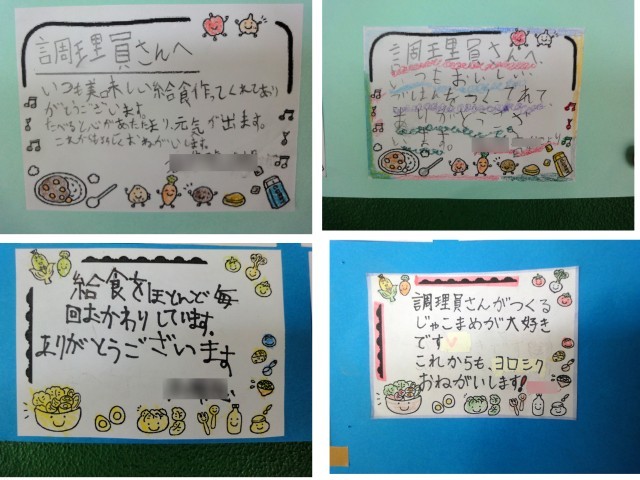 調理員さんへ
いつも美味しい給食作ってくれてあり
がとうございます。
たべると心があたたまり、元気が出ます。
これからもよろしくおねがいします。
調理員さんへ
いつもおいしい
ごはんをつくってくれて
ありがとうござ
います。
給食をほとんど毎
回おかわりしています。
ありがとうございます
調理員さんがつくる
じゃこまめが大好き
です
これからも、ヨロシク
おねがいします!